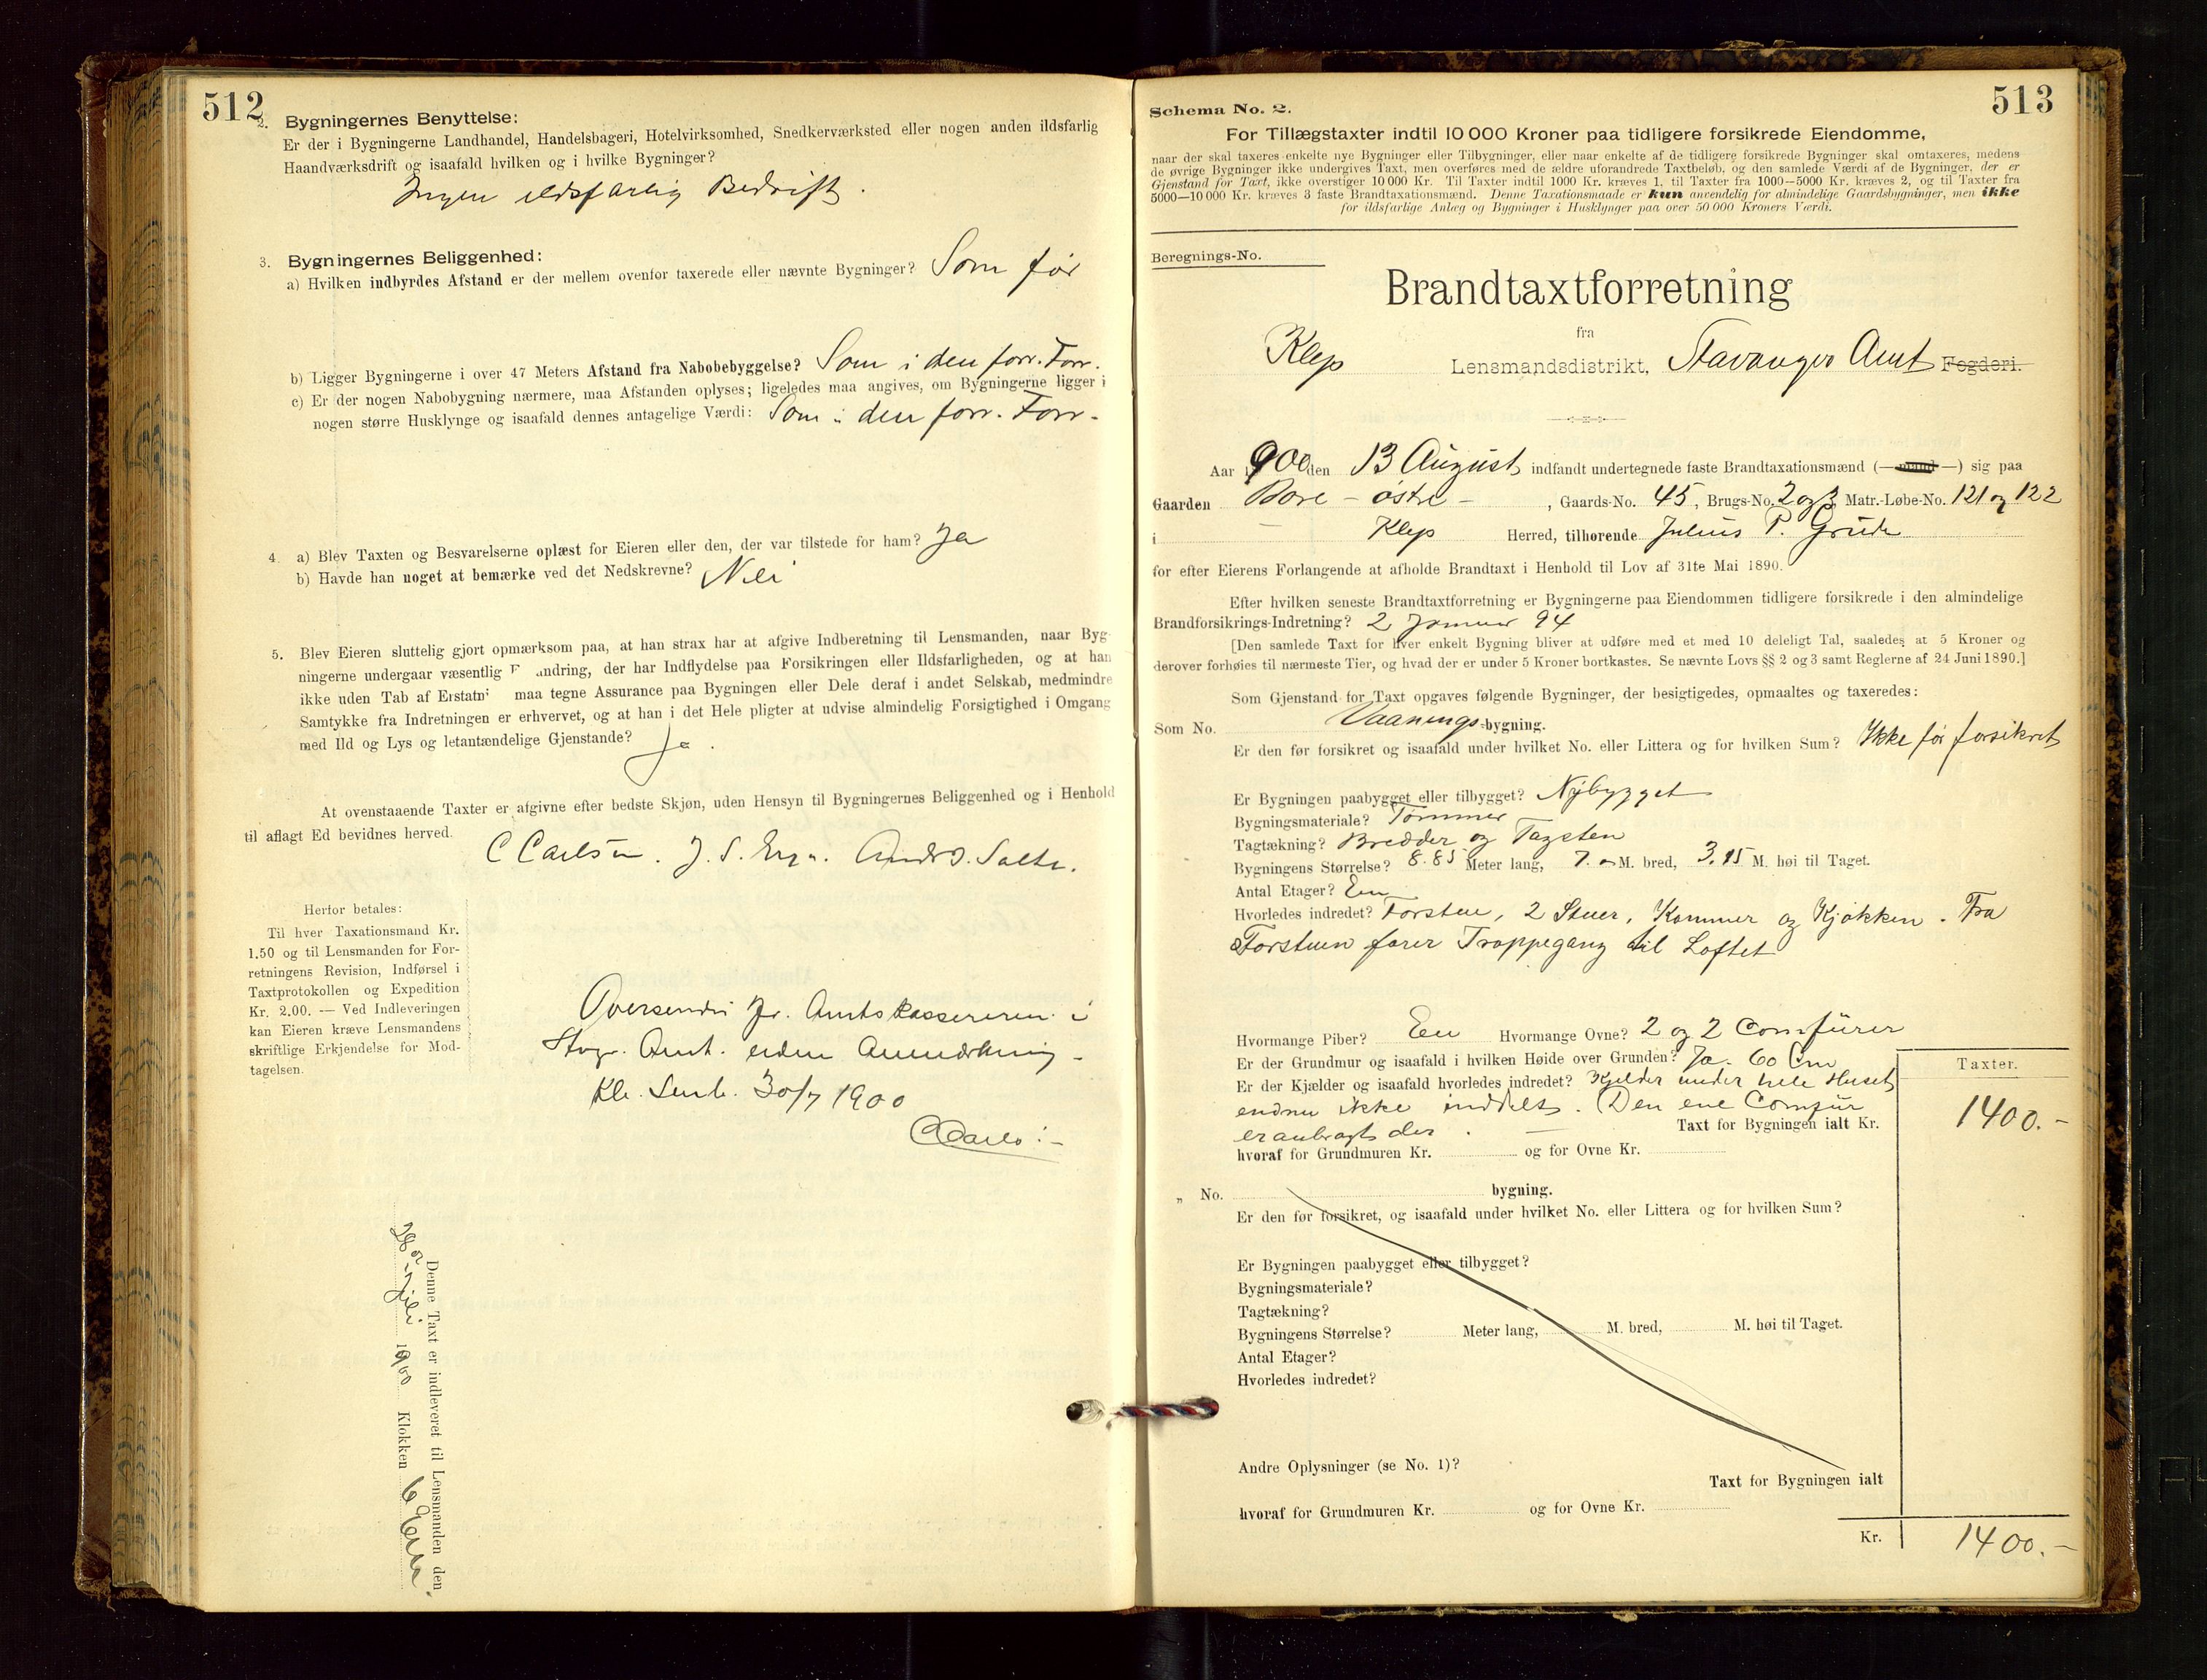 512
2. Bygningernes Benyttelse:
Er der i Bygningerne Landhandel, Handelsbageri, Hotelvirksomhed, Snedkerværksted eller nogen anden ildsfarlig
Haandværksdrift og isaafald hvilken og i hvilke Bygninger?
Ingen ildsfarlig Bedrift.
3. Bygningernes Beliggenhed:
a) Hvilken indbyrdes Afstand er der mellem ovenfor taxerede eller nævnte Bygninger? Som før
b) Ligger Bygningerne i over 47 Meters Afstand fra Nabobebyggelse? Som i den forr. Forr.
c) Er der nogen Nabobygning nærmere, maa Afstanden oplyses; ligeledes maa angives, om Bygningerne ligger i
nogen større Husklynge og isaafald dennes antagelige Værdi: Som i den forr. Forr.
4. a) Blev Taxten og Besvarelserne oplæst for Eieren eller den, der var tilstede for ham? Ja
b) Havde han noget at bemærke ved det Nedskrevne? Nei
5. Blev Eieren sluttelig gjort opmærksom paa, at han strax har at afgive Indberetning til Lensmanden, naar Byg-
ningerne undergaar væsentlig F andring, der har Indflydelse paa Forsikringen eller Ildsfarligheden, og at han
ikke uden Tab af Erstatni maa tegne Assurance paa Bygningen eller Dele deraf i andet Selskab, medmindre
Samtykke fra Indretningen er erhvervet, og at han i det Hele pligter at udvise almindelig Forsigtighed i Omgang
med Ild og Lys og letantændelige Gjenstande? Ja.
At ovenstaaende Taxter er afgivne efter bedste Skjøn, uden Hensyn til Bygningernes Beliggenhed og i Henhold
til aflagt Ed bevidnes herved.
C Carlsen. J. S. Andr. J. Salte.
Herfor betales:
Til hver Taxationsmand Kr.
1.50 og til Lensmanden for For-
retningens Revision, Indførsel i
Taxtprotokollen og Expedition
Kr. 2.00. — Ved Indleveringen
kan Eieren kræve Lensmandens
skriftlige Erkjendelse for Mod-
tagelsen.
Oversendes Hr. Amtskassereren i
Stvgr. Amt. uden Anmærkning -
Kl. Lensk. 30/7 1900
Denne Taxt er indleveret til Lensmanden den
28 Juli 1900 Klokken 6 Efterm.
513
Schema No. 2.
For Tillægstaxter indtil 10000 Kroner paa tidligere forsikrede Eiendomme,
naar der skal taxeres enkelte nye Bygninger eller Tilbygninger, eller naar enkelte af de tidligere forsikrede Bygninger skal omtaxeres, medens
de øvrige Bygninger ikke undergives Taxt, men overføres med de ældre uforandrede Taxtbeløb, og den samlede Værdi af de Bygninger, der er
Gjenstand for Taxt, ikke overstiger 10000 Kr. Til Taxter indtil 1000 Kr. kræves 1, til Taxter fra 1000—5000 Kr. kræves 2, og til Taxter fra
5000—10000 Kr. kræves 3 faste Brandtaxationsmænd. Denne Taxationsmaade er kun anvendelig for almindelige Gaardsbygninger, men ikke
for ildsfarlige Anlæg og Bygninger i Husklynger paa over 50000 Kroners Værdi.
Beregnings-No.
Brandtaxtforretning
fra
Klep Lensmandsdistrikt, Stavanger Amt Fogderi.
Aar 1900 den 13 August indfandt undertegnede faste Brandtaxationsmænd (— —) sig paa
Gaarden Bore - østre - , Gaards-No. 45, Brugs-No. 2 og 3 Matr.-Løbe-No. 121 og 122
i Klep Herred, tilhørende Julius P. Grude
for efter Eierens Forlangende at afholde Brandtaxt i Henhold til Lov af 31te Mai 1890.
Efter hvilken seneste Brandtaxtforretning er Bygningerne paa Eiendommen tidligere forsikrede i den almindelige
Brandforsikrings-Indretning? 2 Januar 94
[Den samlede Taxt for hver enkelt Bygning bliver at udføre med et med 10 deleligt Tal, saaledes at 5 Kroner og
derover forhøies til nærmeste Tier, og hvad der er under 5 Kroner bortkastes. Se nævnte Lovs §§ 2 og 3 samt Reglerne af 24 Juni 1890.]
Som Gjenstand for Taxt opgaves følgende Bygninger, der besigtigedes, opmaaltes og taxeredes:
Som No. Vaanings-bygning.
Er den før forsikret og isaafald under hvilket No. eller Littera og for hvilken Sum? Ikke før forsikret
Er Bygningen paabygget eller tilbygget? Nybygget
Bygningsmateriale? Tømmer
Tagtækning? Bredder og Tagsten
Bygningens Størrelse? 8.85 Meter lang, 7. M. bred, 3.15 M. høi til Taget.
Antal Etager? En
Hvorledes indredet? Forstue, 2 Stuer, Kammer og Kjøkken. Fra
Forstuen fører Trappegang til Loftet
Hvormange Piber? En Hvormange Ovne? 2 og 2 Comfürer
Er der Grundmur og isaafald i hvilken Høide over Grunden? Ja. 60 Cm
Er der Kjælder og isaafald hvorledes indredet? Kjelder under hele Huset
endnu ikke inddelt. Den ene Comfür
er anbragt der. — Taxt for Bygningen ialt Kr.
hvoraf for Grundmuren Kr. og for Ovne Kr.
Taxter.
1400.-
„ No. bygning.
Er den før forsikret, og isaafald under hvilket No. eller Littera og for hvilken Sum?
Er Bygningen paabygget eller tilbygget?
Bygningsmateriale?
Tagtækning?
Bygningens Størrelse? Meter lang, M. bred, M. høi til Taget.
Antal Etager?
Hvorledes indredet?
Andre Oplysninger (se No. 1)?
Taxt for Bygningen ialt
hvoraf for Grundmuren Kr. og for Ovne Kr.
Kr. 1400.-